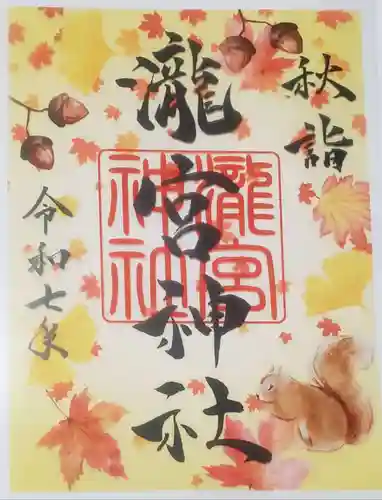 秋詣
瀧宮神社
瀧宮神社
令和七年